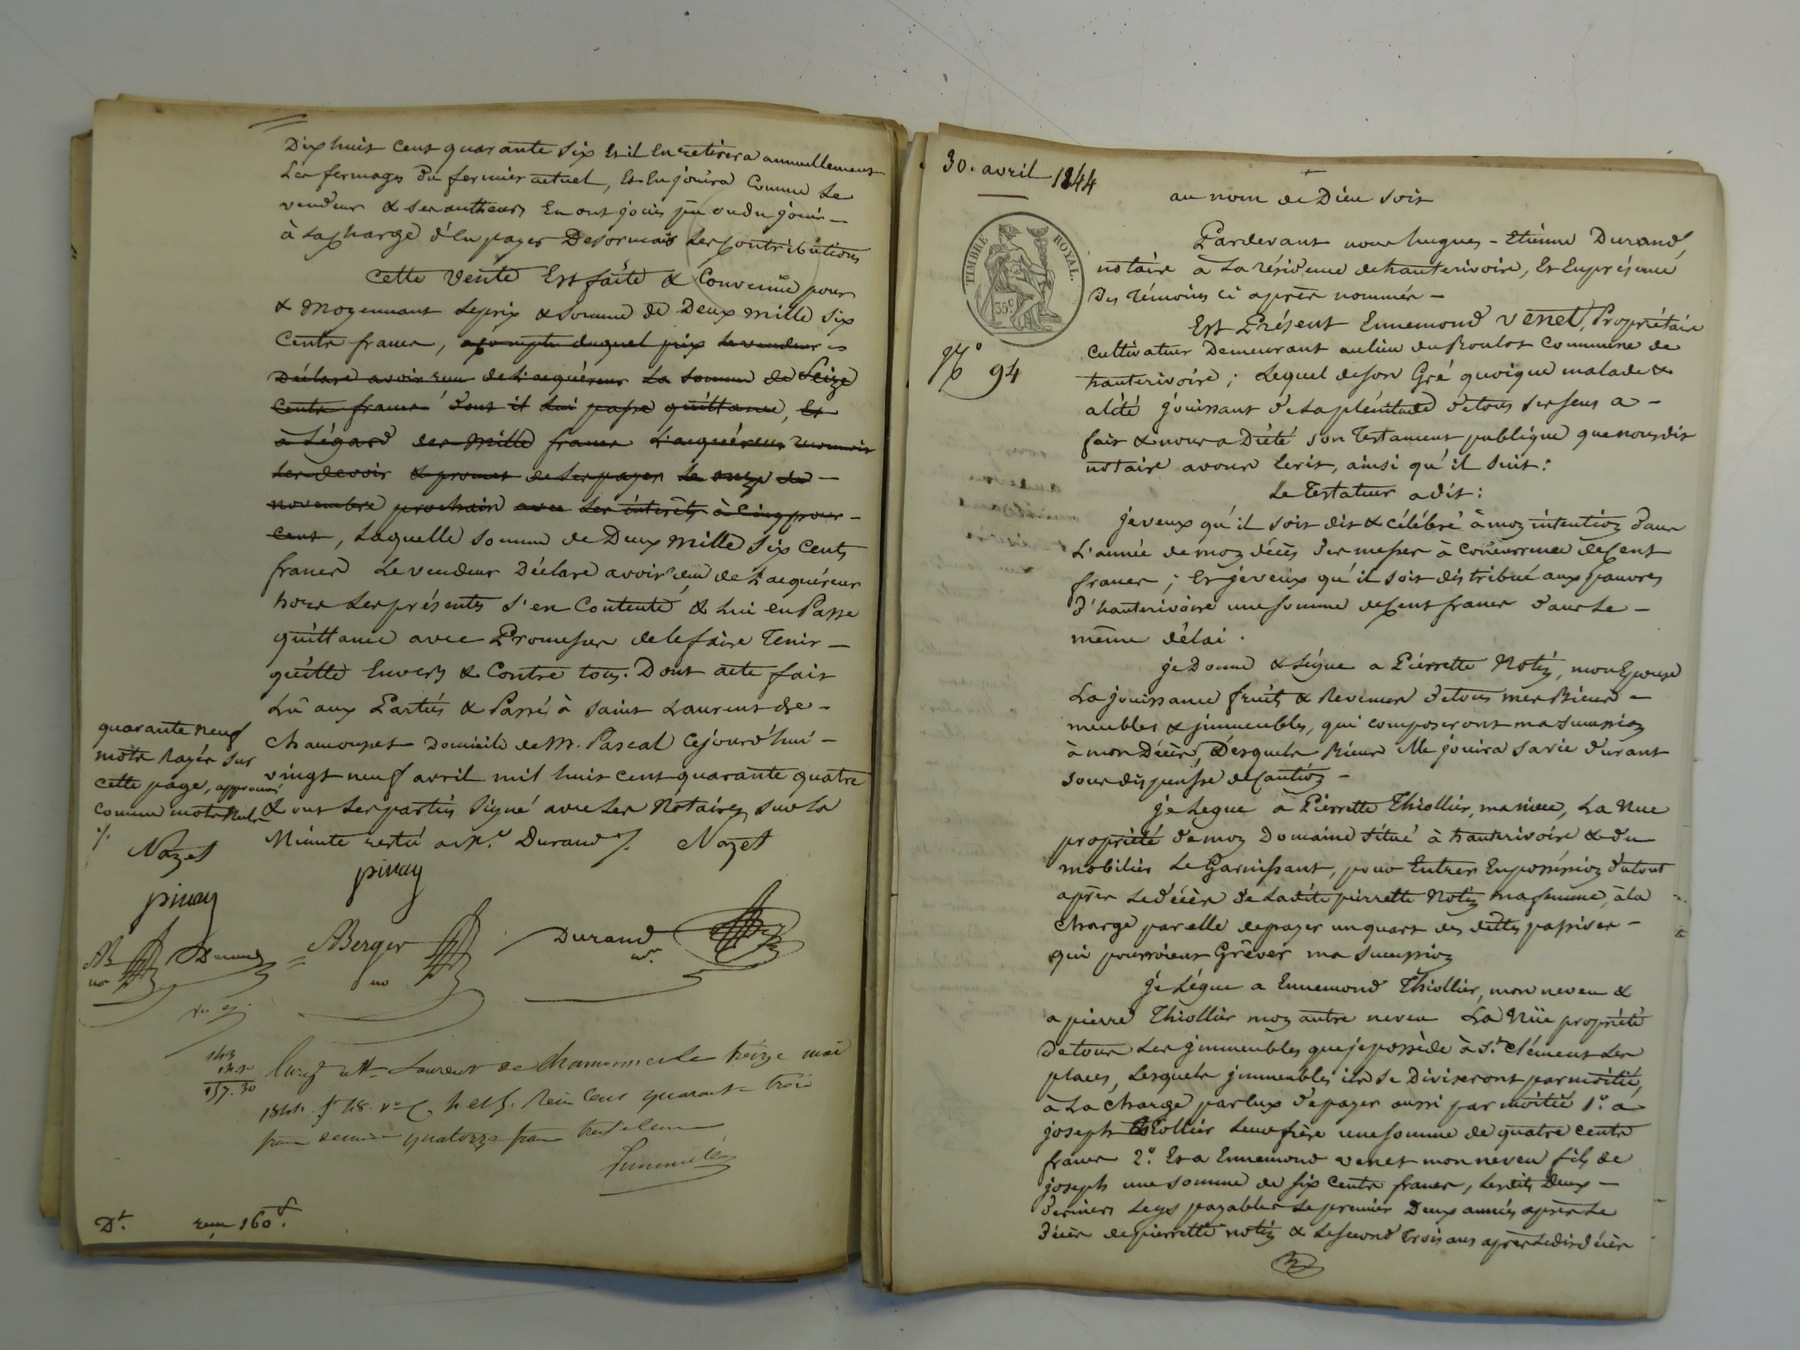 Dix huit cent quarante six et il en retirera annuellement
Les fermages du fermier actuel, et en jouira comme le
vendeur & ses autheurs en ont joui pu ou du jouir —
à la charge d'en payer Desormais Les Contributions
Cette Vente Est faite & Convenüe pour
& moyennant Le prix & Somme de Deux mille Six
Cents francs, a compte duquel prix le vendeur =
Déclare avoir reçu de l'acquéreur La Somme de Seize
Cents francs dont il Lui passe quittance, Et
à Légard des mille francs L'acquéreur reconnoit
Les devoir & promet de Les payer Le onze de —
novembre prochain avec Les intérêts à Cinq pour —
Cent, Laquelle Somme de Deux mille Six Cents
francs Le vendeur Déclare avoir reçu de L'acquéreur
hors Les présentes S'en Contente & Lui en Passe
quittance avec Promesse de le faire Tenir —
quitte Envers & Contre tous. Dont acte fait
Lu aux Parties & Passé à Saint Laurent de —
Chamousset Domicile de M. Pascal Cejourd'hui —
vingt neuf avril mil huit cent quarante quatre
& ont Les parties Signé avec Les Notaires Sur La
Minute restée a Me Durand /. Nozet
quarante neuf
mots rayés sur
cette page, approuvé
comme mots Nuls
/.
Nozet
pinay
pinay
Durand
ABerger
no
Durand
nre
157.30
Enregé à St Laurent de Chamousset le treize mai
1844. fo 78. vo C. Reçu Cent quarante trois
francs decime quatorze francs trente Centimes
Dt. reçu 160 f.
30. avril 1844
TIMBRE ROYAL.
35c
No 94
au nom de Dieu Soit
Pardevant nous hugues-Etienne Durand,
notaire à La résidence de hauterivoire, Et En présence
Des témoins ci après nommés —
Est Présent Ennemond Venet, Propriétaire
Cultivateur Demeurant au lieu du Roulot Commune de
hauterivoire; Lequel de Son Gré quoique malade &
alité jouissant de La plénitude de tous Ses Sens a —
fait & nous a Dicté Son Testament publique que nous dit
notaire avons Ecrit, ainsi qu'il Suit:
Le Testateur a dit:
je veux qu'il Soit dit & célébré à mon intention dans
L'année de mon décès des messes à Concurrence de Cent
francs; Et je veux qu'il Soit distribué aux pauvres
d'hauterivoire une Somme de Cent francs dans Le —
même délai.
je Donne & Légue a Pierrette Notin, mon Epouse
La jouissance fruits & Revenus de tous mes Biens —
meubles & jmmeubles, qui composeront ma Succession
à mon Décès, Desquels Biens Elle jouira Sa vie Durant
Sous dispensse de Caution —
je Legue à Pierrette Thiollier, ma nièce, La Nue
propriété de mon Domaine Situé à hauterivoire & du
mobilier Le Garnissant, pour Entrer En possession du tout
après Le décès de Ladite pierrette Notin ma femme, à la
charge par elle de payer un quart des dettes passives —
qui pourroient Grêver ma Succession
je Légue a Ennemond Thiollier, mon neveu &
a pierre Thiollier mon autre neveu La Nüe propriété
de tous Les jmmeubles que je possède à St. Clément Les
places, Lesquels jmmeubles ils Se Diviseront par moitié,
à La charge par Eux de payer aussi par moitié 1o. a
joseph Thiollier Leur frère une Somme de quatre cents
francs 2o. Et a Ennemond Venet mon neveu fils de
joseph une Somme de Six Cents francs, Lesdits Deux —
derniers Legs payables Le premier Deux années après Le
décès de pierrette notin & Le Second trois ans après Ledit décès